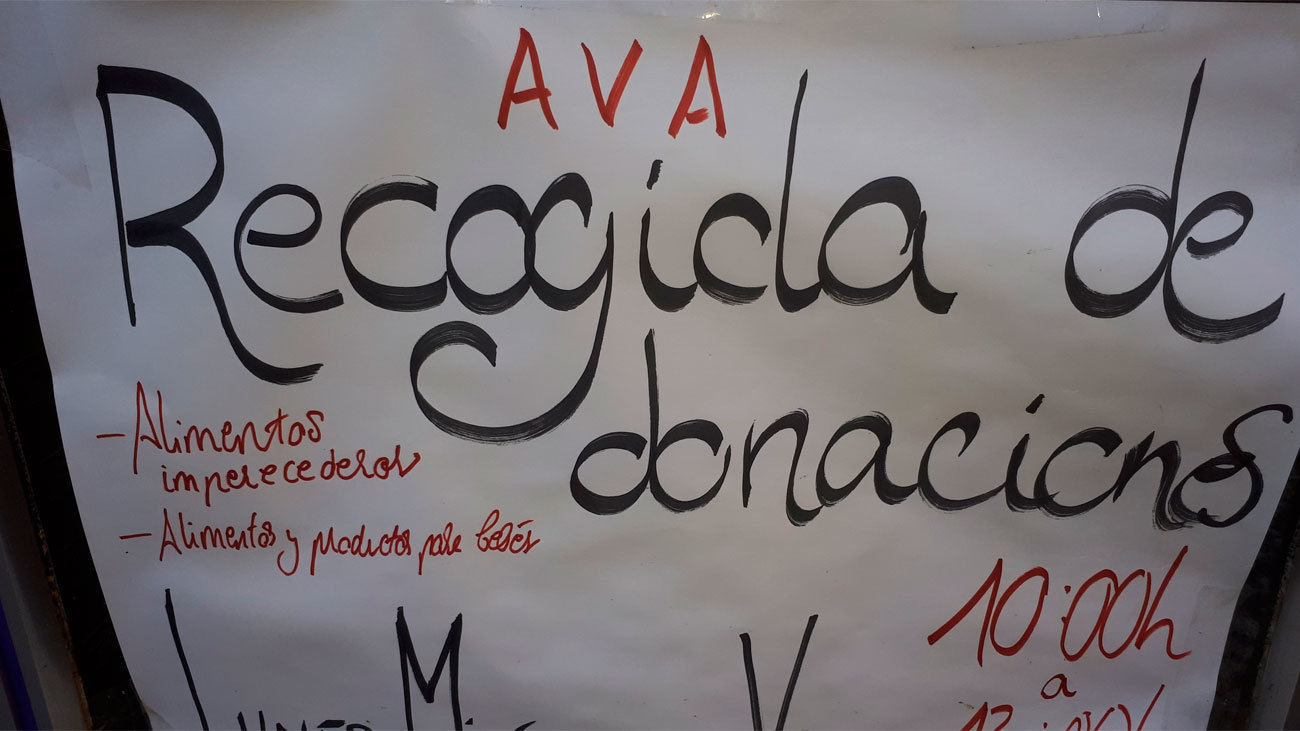 AVA
Recogida de
donacions
- Alimentos
imperecederos
- Alimentos y productos para bebés
10:00h
a